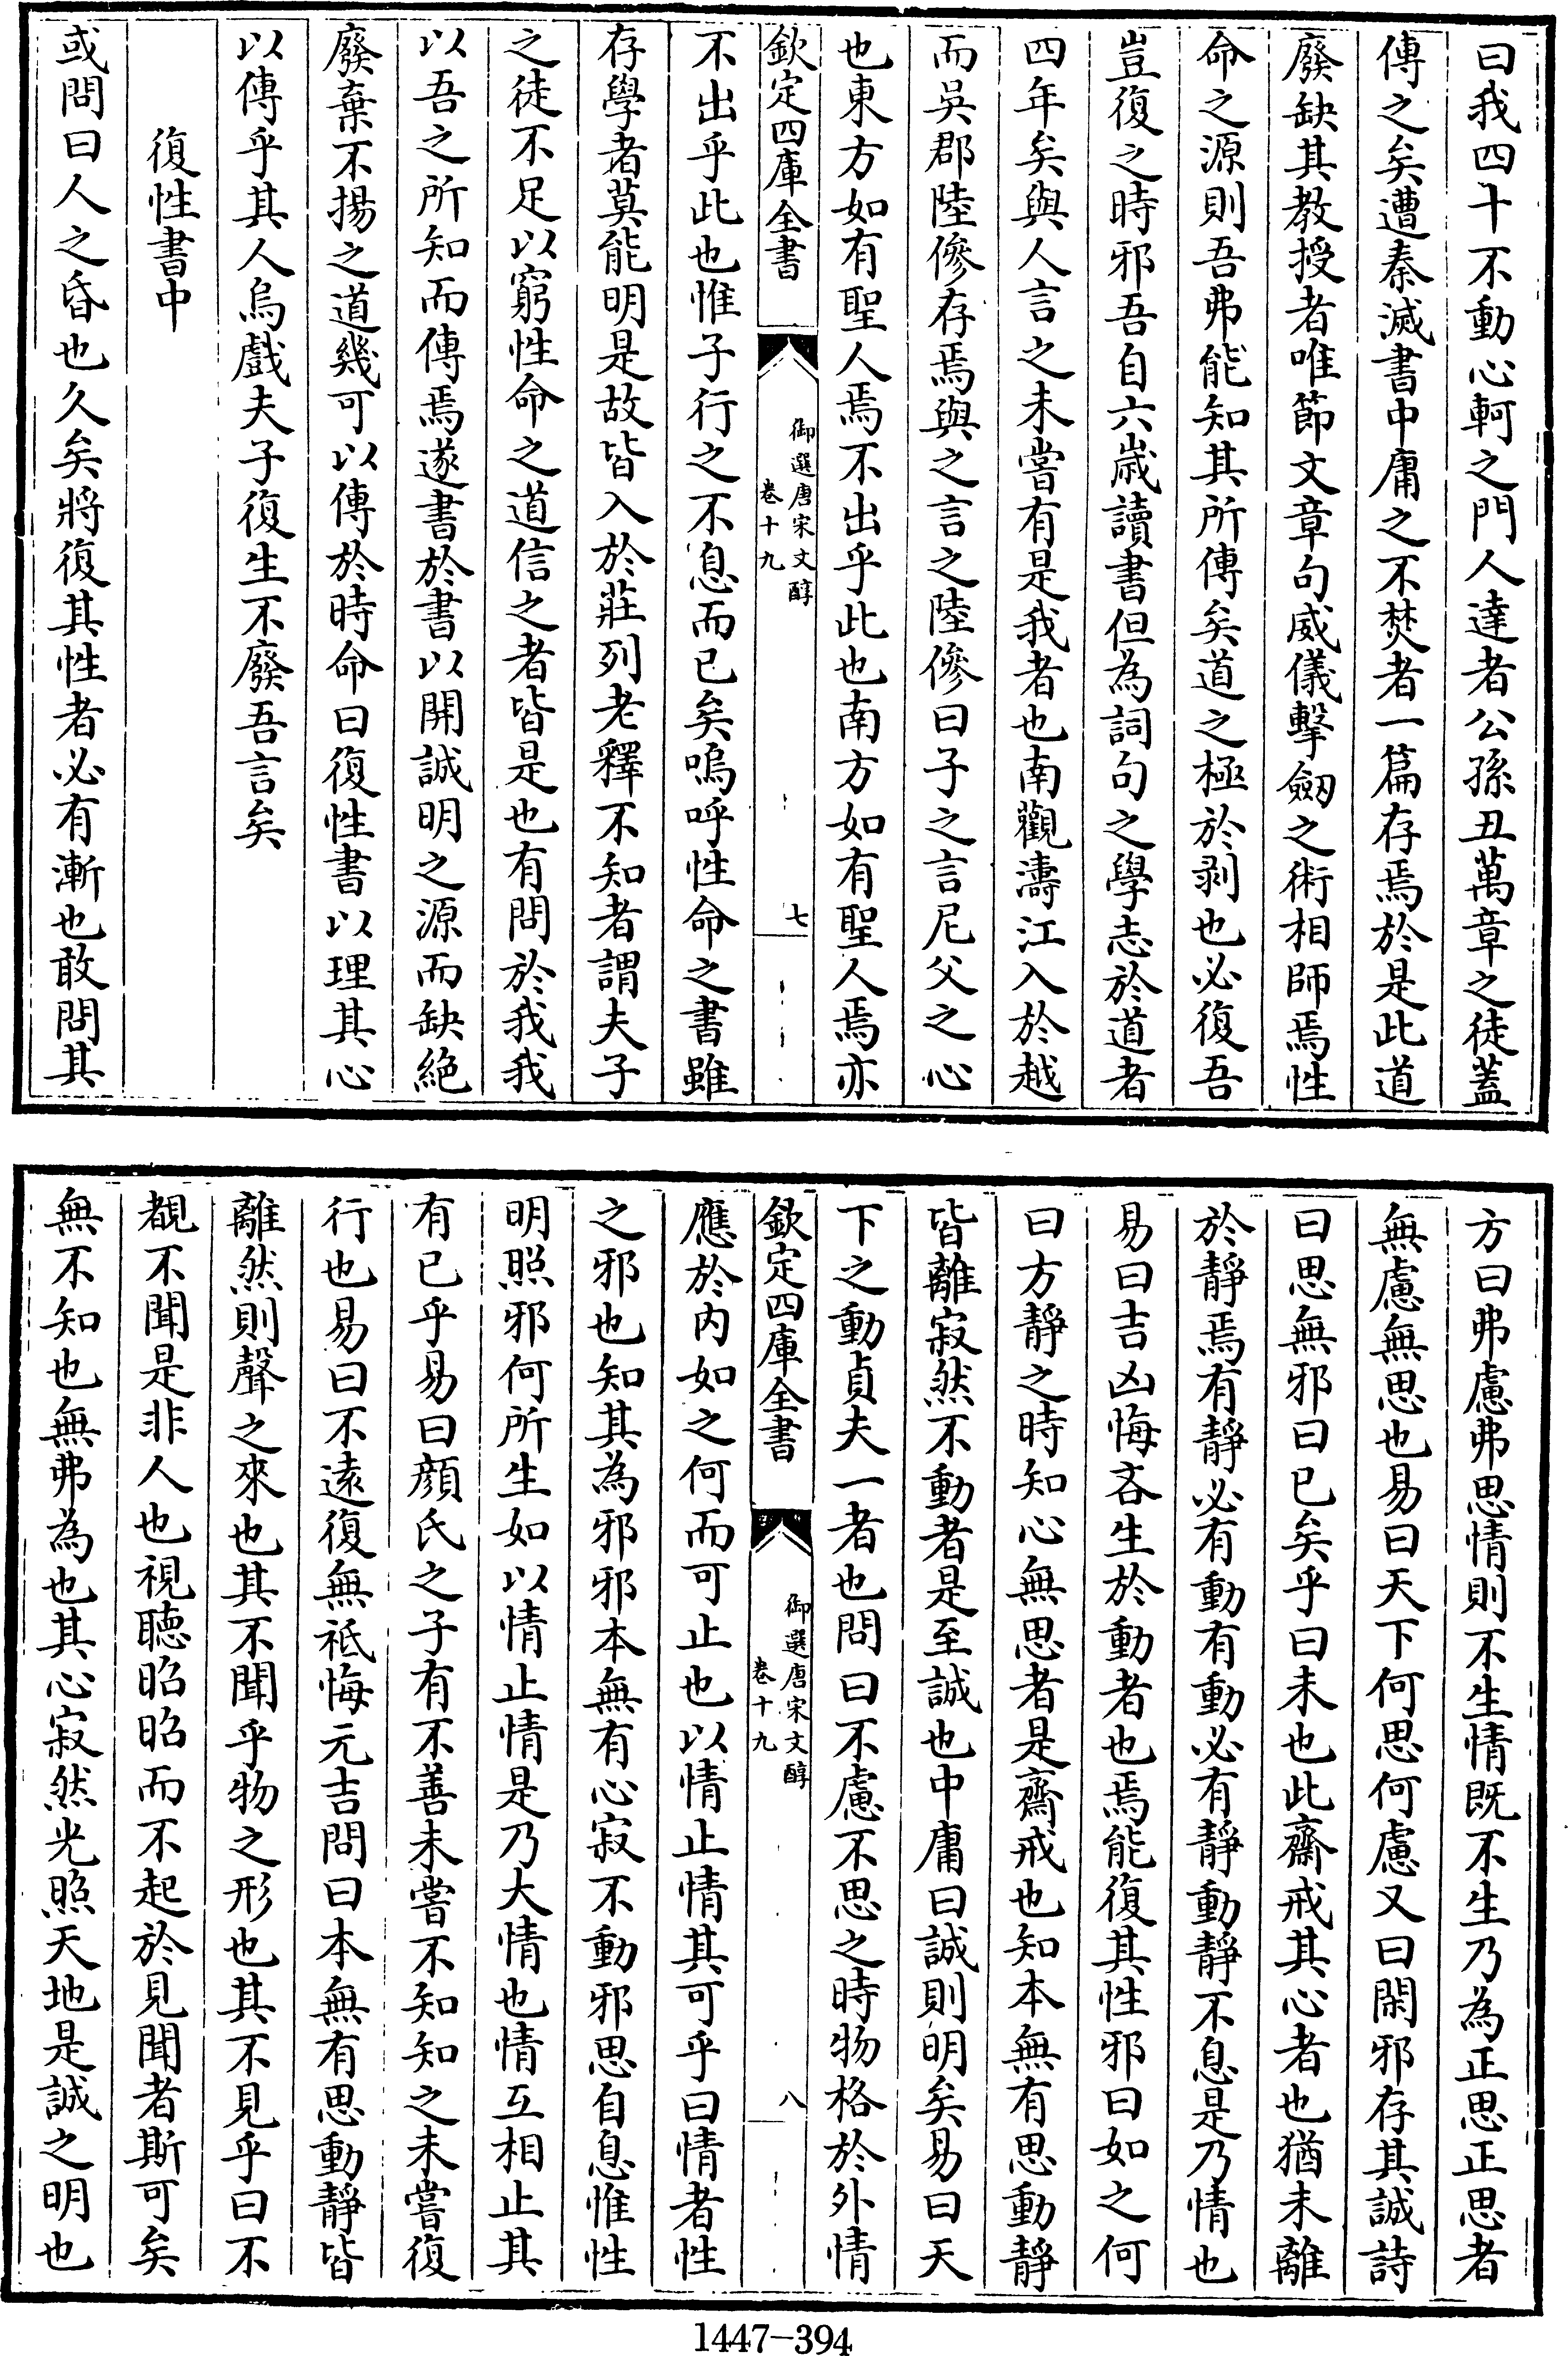 曰我四十不動心軻之門人達者公孫丑萬章之徒蓋
傳之矣遭秦滅書中庸之不焚者一篇存焉於是此道
廢缺其教授者唯節文章句威儀擊劒之術相師焉性
命之源則吾弗能知其所傳矣道之極於剥也必復吾
豈復之時邪吾自六歲讀書但為詞句之學志於道者
四年矣與人言之未嘗有是我者也南觀濤江入於越
而吳郡陸傪存焉與之言之陸傪曰子之言尼父之心
也東方如有聖人焉不出乎此也南方如有聖人焉亦
欽定四庫全書
御選唐宋文醇
卷十九
七
不出乎此也惟子行之不息而已矣嗚呼性命之書雖
存學者莫能明是故皆入於莊列老釋不知者謂夫子
之徒不足以窮性命之道信之者皆是也有問於我我
以吾之所知而傳焉遂書於書以開誠明之源而缺絶
廢棄不揚之道幾可以傳於時命曰復性書以理其心
以傳乎其人烏戲夫子復生不廢吾言矣
復性書中
或問曰人之昏也久矣將復其性者必有漸也敢問其
方曰弗慮弗思情則不生情既不生乃為正思正思者
無慮無思也易曰天下何思何慮又曰閑邪存其誠詩
曰思無邪曰已矣乎曰未也此齋戒其心者也猶未離
於靜焉有靜必有動有動必有靜動靜不息是乃情也
易曰吉凶悔吝生於動者也焉能復其性邪曰如之何
曰方靜之時知心無思者是齋戒也知本無有思動靜
皆離寂然不動者是至誠也中庸曰誠則明矣易曰天
下之動貞夫一者也問曰不慮不思之時物格於外情
欽定四庫全書
御選唐宋文醇
卷十九
八
應於内如之何而可止也以情止情其可乎曰情者性
之邪也知其為邪邪本無有心寂不動邪思自息惟性
明照邪何所生如以情止情是乃大情也情互相止其
有已乎易曰顔氏之子有不善未嘗不知知之未嘗復
行也易曰不遠復無祗悔元吉問曰本無有思動靜皆
離然則聲之來也其不聞乎物之形也其不見乎曰不
覩不聞是非人也視聽昭昭而不起於見聞者斯可矣
無不知也無弗為也其心寂然光照天地是誠之明也
1447-394